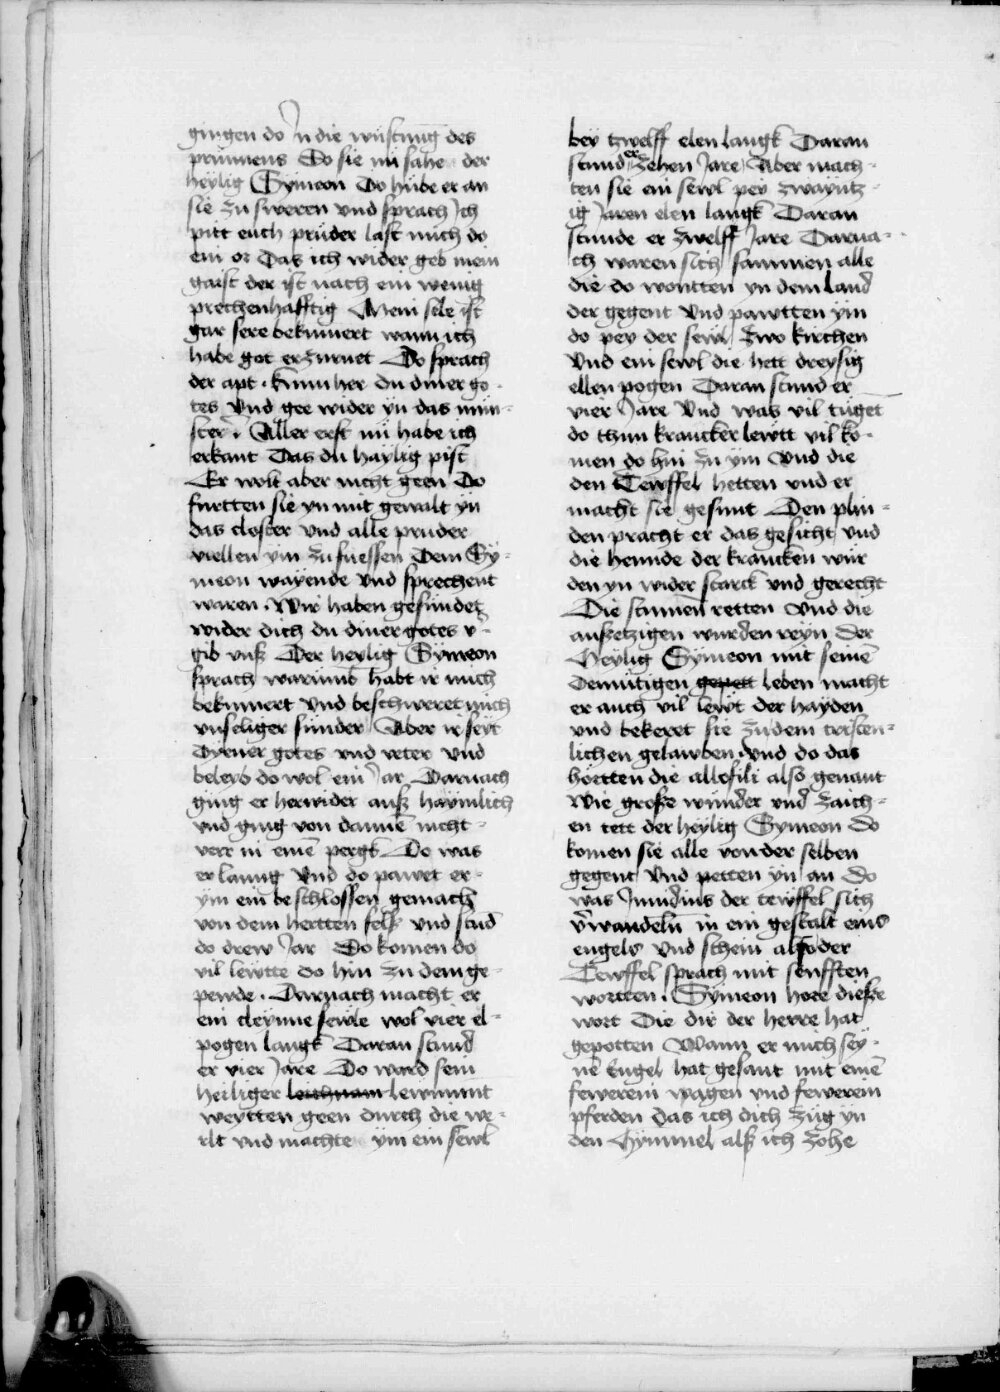 gingen do Jn die wüstung des
prunnens Do sie nü sahe der
heylig Symeon Do hube er an
sie zu sweren vnd sprach Jch
pitt euch pruder last mich do
ein or Das ich wider geb mein
gaist der ist nach ein wenig
prechenhafftig Mein sele ist
gar sere bekumert wann ich
habe got erzurnet Do sprach
der apt · kum her du diner go-
tes Vnd gee wider yn das mün-
ster · Aller erst nü habe ich
erkant Das du haylig pist
Er wolt aber nicht geen Do
furtten sie yn mit gewalt yn
das closter vnd alle pruder
viellen ym zu fuessen Dem Sy-
meon wayende vnd sprechent
waren · Wir haben gesundet
wider dich du diner gotes v̄-
gib vnß Der heylig Symeon
sprach warumb habt ir mich
bekumert vnd beschweret mich
vnseliger sunder Aber ir seyt
Dyener gotes vnd veter vnd
beleyb do wol ein Jar Darnach
ging er herwider auß haymlich
vnd ging von dannē nicht-
verr in einē pergk Do was
er lanng Vnd do pawet er-
ym ein beschlossen gemach
von dem hertten felß vnd stūd
do drew Jar Do komen do
vil lewtte do hin zu dem ge-
pewde · Darnach macht er
ein cleynne sewle wol vier el-
pogen langk Daran stund
er vier Jare Do ward sein
heiliger leichnam lewmunt
weytten geen durch die we-
rlt vnd machte ym ein sewl
bey tzwelff elen langk Daran
stund er zehen Jare Aber mach-
ten sie ein sewl pey zwayntz-
ig Jaren elen langk Daran
stunde er zwelff Jare Darna-
ch waren sich sammen alle
die do wontten yn dem land
der gegent Vnd pawtten ym
do pey der sewl zwo kirchen
Vnd ein sewl die hett dreysig
ellen pogen Daran stund er
vier Jare Vnd was vil tugēt
do thun krancker lewtt vil ko-
men do hin zu ym Vnd die
den Tewffel hetten vnd er
macht sie gesunt Den plin-
den pracht er das gesicht vnd
die hennde der krancken wur
den yn wider starck vnd gerecht
Die stumen retten Vnd die
außetzigen wurden reyn Der
Heylig Symeon mit seinē
Demütigen leben macht
er auch vil lewt der hayden
vnd bekeret sie zu dem cristen-
lichen gelawben · Vnd do das
hortten die allofili also genant
Wie große wunder vnd zaich-
en tett der heylig Symeon Do
komen sie alle von der selben
gegent Vnd petten yn an Do
was Jnuidius der tewffel sich
v̄wandeln in ein gestalt eins
engels Vnd schein also der
Tewffel sprach mit senfften
wortten · Symeon hore dieße
wort Die dir der herre hat
gepotten Wann er mich sey-
nē Engel hat gesant mit einē
fewerein wagen vnd fewerein
pferden Das ich dich züg yn
den Hymmel alß ich zohe